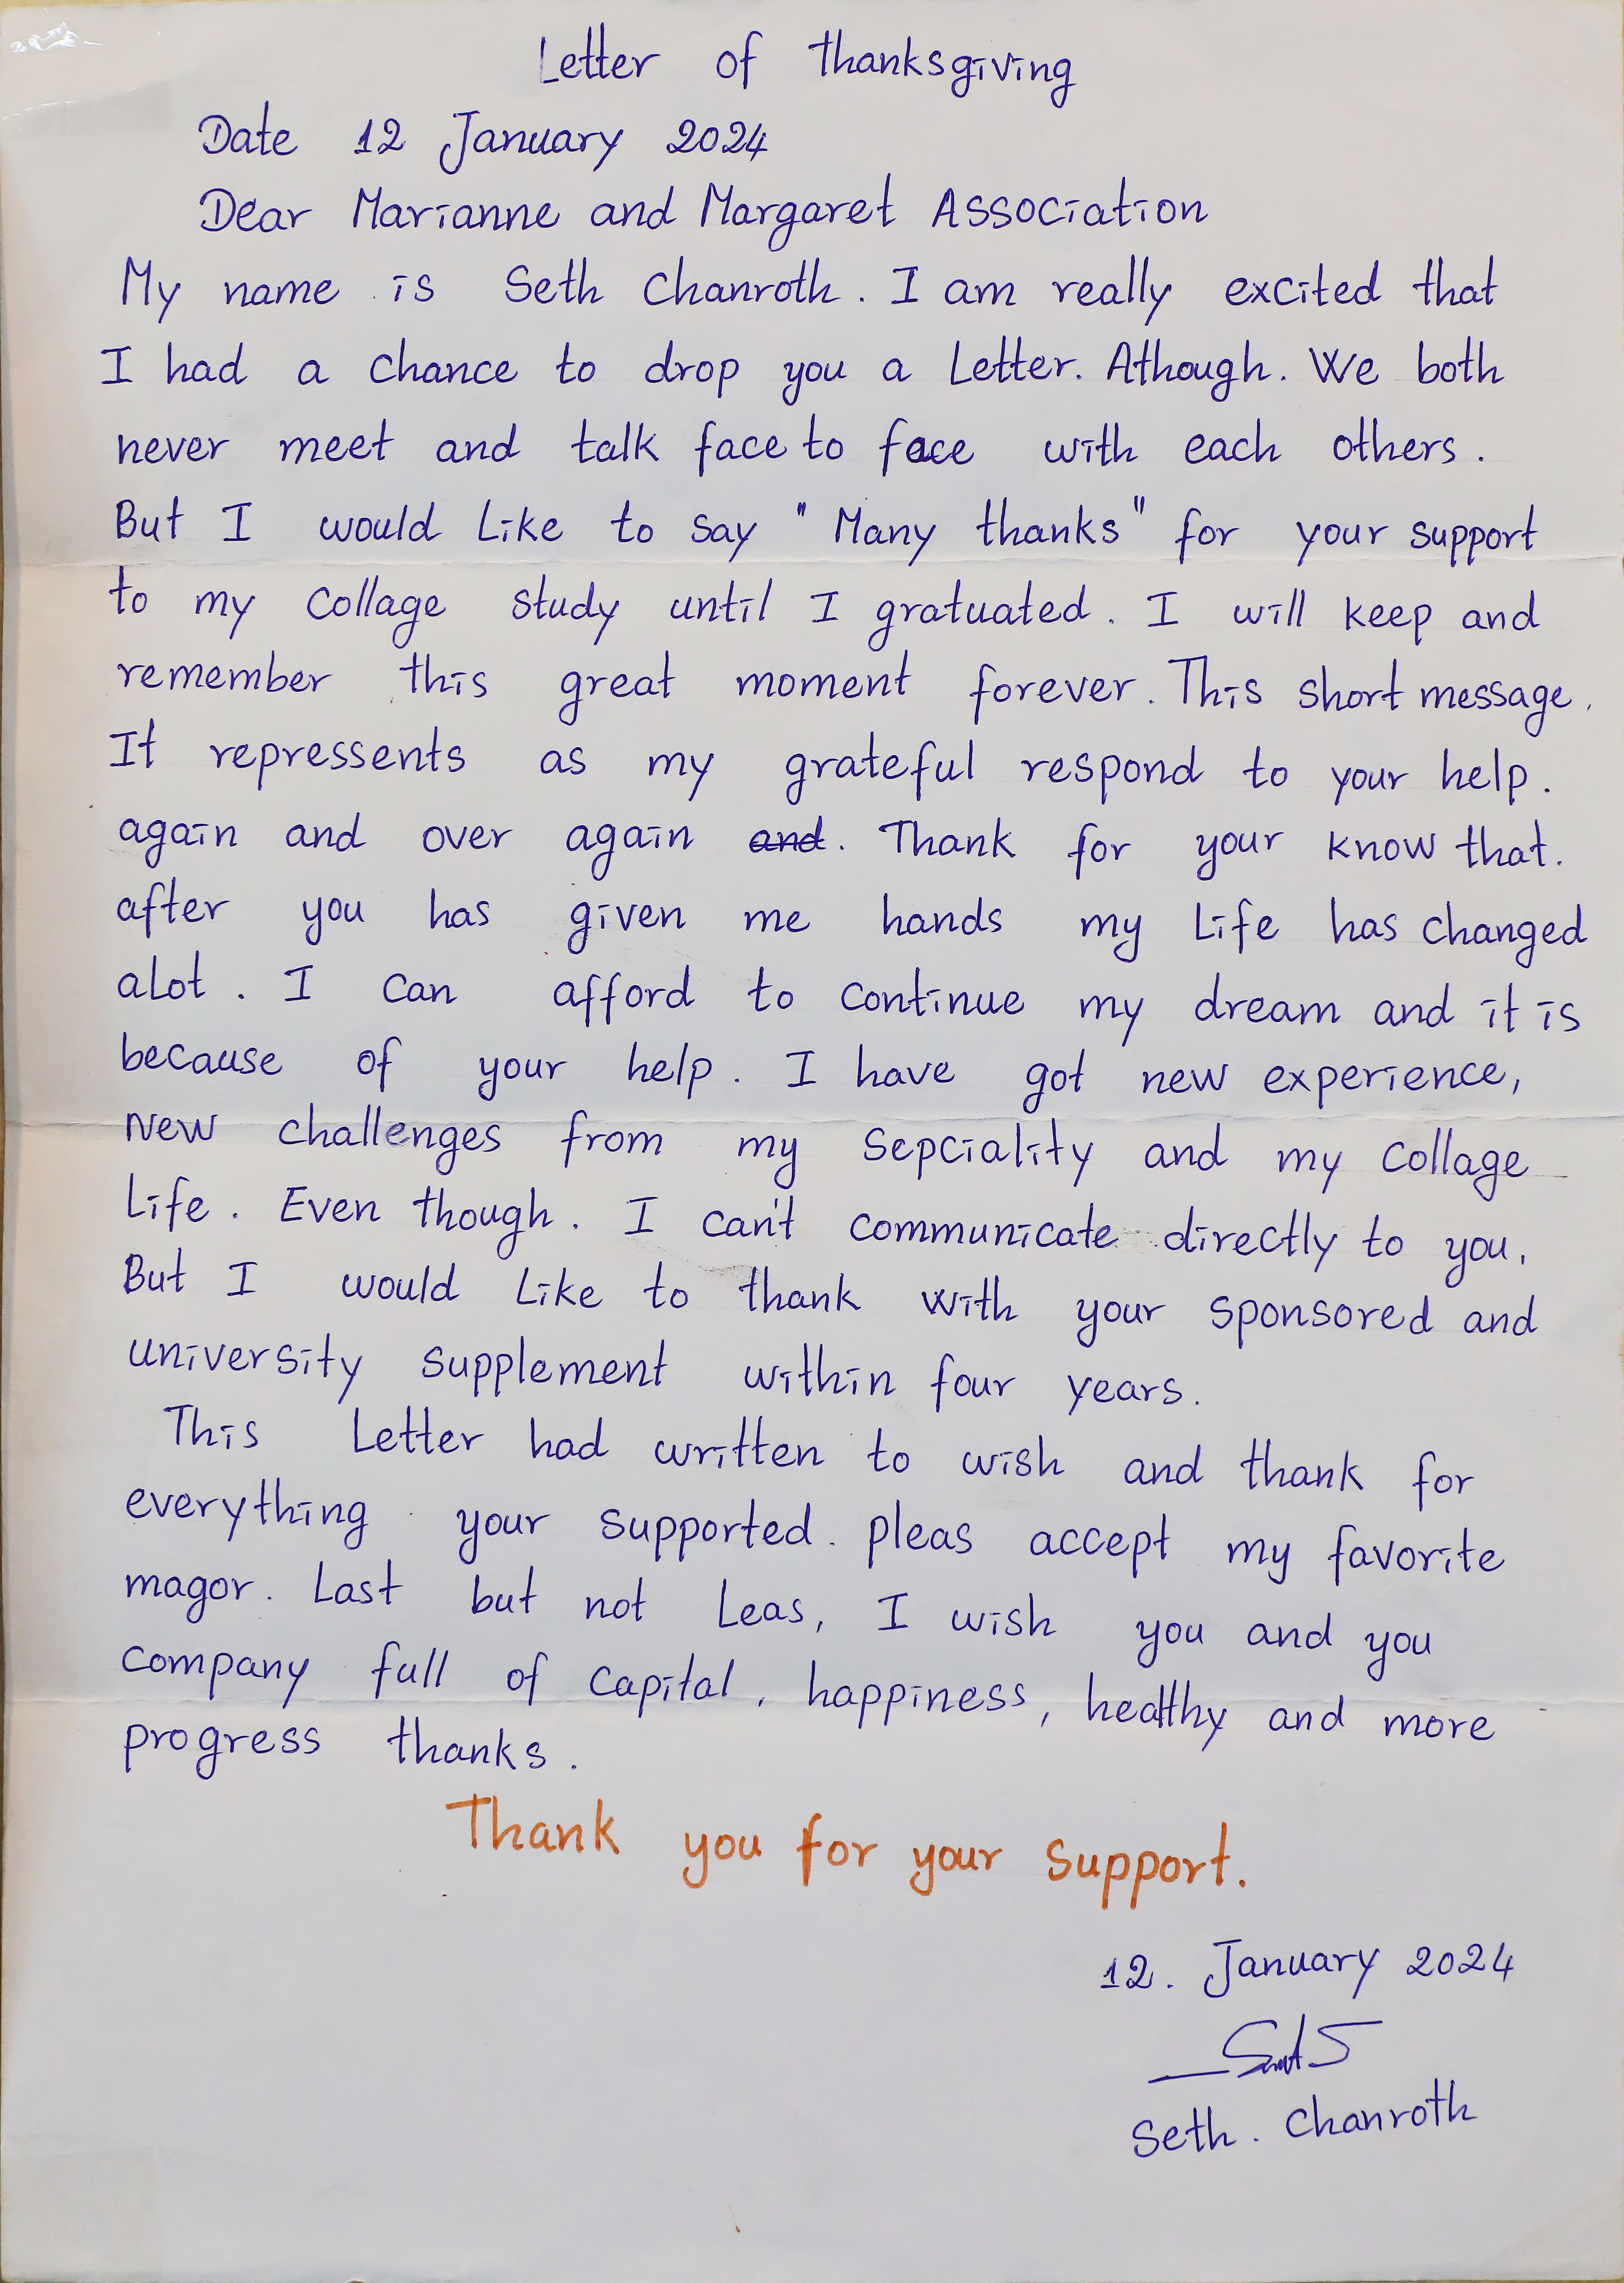 Letter of thanksgiving
Date 12 January 2024
Dear Marianne and Margaret Association
My name is Seth Chanroth. I am really excited that
I had a chance to drop you a Letter. Athough. We both
never meet and talk face to face with each others.
But I would Like to say "Many thanks" for your support
to my collage study until I gratuated. I will keep and
remember this great moment forever. This short message.
It repressents as my grateful respond to your help.
again and over again and. Thank for your know that.
after you has given me hands my Life has changed
alot. I can afford to continue my dream and it is
because of your help. I have got new experience,
new challenges from my sepciality and my collage
Life. Even though. I can't communicate directly to you,
But I would Like to thank with your sponsored and
university supplement within four years.
This Letter had written to wish and thank for
everything your supported. pleas accept my favorite
magor. Last but not Leas, I wish you and you
company full of capital, happiness, healthy and more
progress thanks.
Thank you for your support.
12. January 2024
Seth. Chanroth